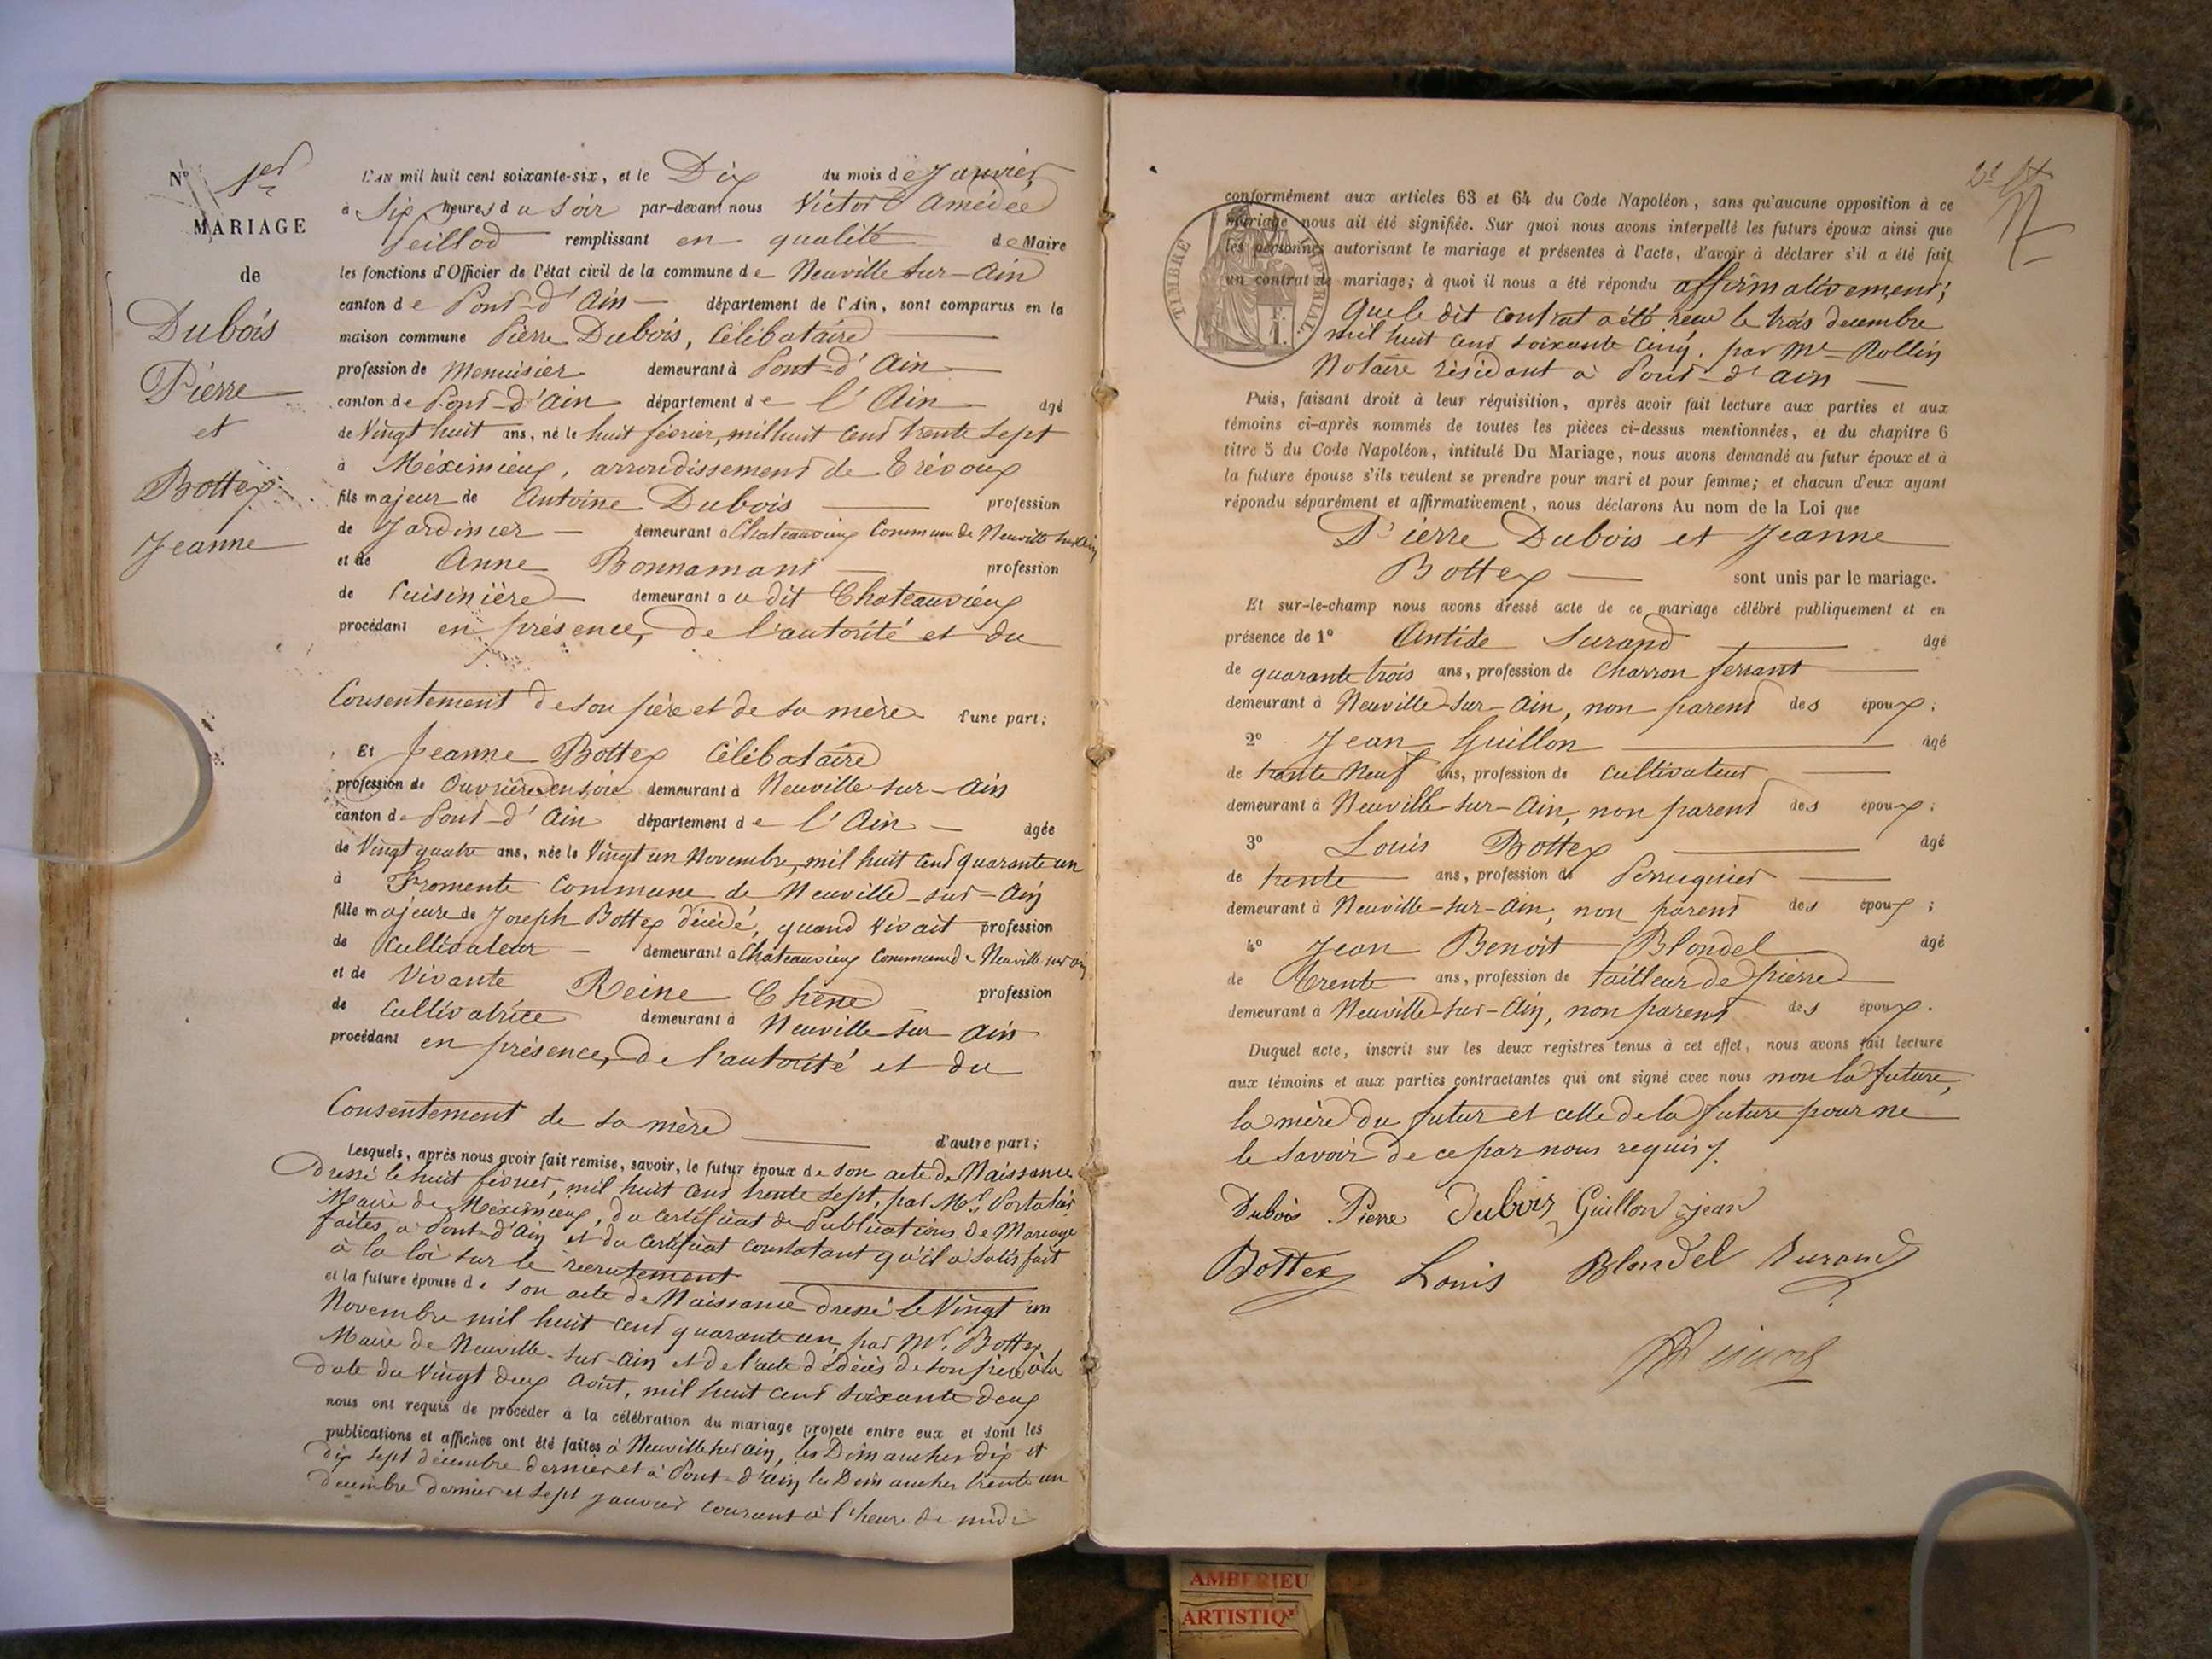 N° 1er
MARIAGE
de
Dubois
Pierre
et
Bottex
Jeanne
L'AN mil huit cent soixante-six, et le Dix du mois de Janvier
à Six heures du Soir par-devant nous Victor Amédée
remplissant en qualité de Maire
les fonctions d'Officier de l'état civil de la commune de Neuville sur-Ain
canton de Pont-d'Ain département de l'Ain, sont comparus en la
maison commune Pierre Dubois, Célibataire
profession de Menuisier demeurant à Pont-d'Ain
canton de Pont-d'Ain département de l'Ain âgé
de Vingt huit ans, né le huit février, mil huit cent trente sept
à Méximieux, arrondissement de Trévoux
fils majeur de Antoine Dubois profession
de Jardinier demeurant à Chateauvieux Commune de Neuville sur Ain
et de Anne Bonnamant profession
de Cuisinière demeurant au dit Chateauvieux
procédant en présence, de l'autorité et du
Consentement de son père et de sa mère d'une part;
Et Jeanne Bottex Célibataire
profession de Ouvrière en soie demeurant à Neuville-sur-Ain
canton de Pont-d'Ain département de l'Ain âgée
de Vingt quatre ans, née le Vingt un Novembre, mil huit cent quarante un
à Fromente Commune de Neuville-sur-Ain
fille majeure de Joseph Bottex décédé, quand vivait profession
de Cultivateur demeurant à Chateauvieux Commune de Neuville sur Ain
et de Vivante Reine Chêne profession
de Cultivatrice demeurant à Neuville-sur-Ain
procédant en présence, de l'autorité et du
Consentement de sa mère d'autre part;
Lesquels, après nous avoir fait remise, savoir, le futur époux de son acte de Naissance
Dressé le huit février, mil huit cent trente sept, par Mr
Maire de Méximieux, du Certificat de Publications de Mariage
faites, à Pont-d'Ain et du Certificat constatant qu'il a satisfait
à la loi sur le recrutement
et la future épouse de son acte de Naissance dressé le Vingt un
Novembre mil huit cent quarante un, par Mr. Bottex
Maire de Neuville-sur-Ain et de l'acte de décès de son père à la
date du Vingt deux Août, mil huit cent soixante deux
nous ont requis de procéder à la célébration du mariage projeté entre eux et dont les
publications et affiches ont été faites à Neuville sur Ain, les Dimanches dix et
dix sept décembre dernier et à Pont-d'Ain les Dimanches trente un
décembre dernier et sept janvier courant à l'heure de midi
conformément aux articles 63 et 64 du Code Napoléon, sans qu'aucune opposition à ce
mariage nous ait été signifiée. Sur quoi nous avons interpellé les futurs époux ainsi que
les personnes autorisant le mariage et présentes à l'acte, d'avoir à déclarer s'il a été fait
un contrat de mariage; à quoi il nous a été répondu affirmativement;
TIMBRE IMPERIAL.
Que le dit contrat a été reçu le trois decembre
mil huit cent soixante cinq, par Me Rollin
Notaire résidant à Pont-d'Ain
Puis, faisant droit à leur réquisition, après avoir fait lecture aux parties et aux
témoins ci-après nommés de toutes les pièces ci-dessus mentionnées, et du chapitre 6
titre 5 du Code Napoléon, intitulé Du Mariage, nous avons demandé au futur époux et à
la future épouse s'ils veulent se prendre pour mari et pour femme; et chacun d'eux ayant
répondu séparément et affirmativement, nous déclarons Au nom de la Loi que
Pierre Dubois et Jeanne
Bottex sont unis par le mariage.
Et sur-le-champ nous avons dressé acte de ce mariage célébré publiquement et en
présence de 1° Antide Surand âgé
de quarante trois ans, profession de Charron ferrant
demeurant à Neuville-sur-Ain, non parent des époux;
2° Jean Guillon âgé
de trente Neuf ans, profession de Cultivateur
demeurant à Neuville-sur-Ain, non parent des époux;
3° Louis Bottex âgé
de trente ans, profession de Perruquier
demeurant à Neuville-sur-Ain, non parent des époux;
4° Jean Benoit Blondel âgé
de Trente ans, profession de tailleur de pierre
demeurant à Neuville-sur-Ain, non parent des époux.
Duquel acte, inscrit sur les deux registres tenus à cet effet, nous avons fait lecture
aux témoins et aux parties contractantes qui ont signé avec nous non la future,
la mère du futur et celle de la future pour ne
le savoir de ce par nous requis.
Dubois Pierre Dubois Guillon jean
Bottex Louis Blondel Surand
AMBERIEU
ARTISTIQ